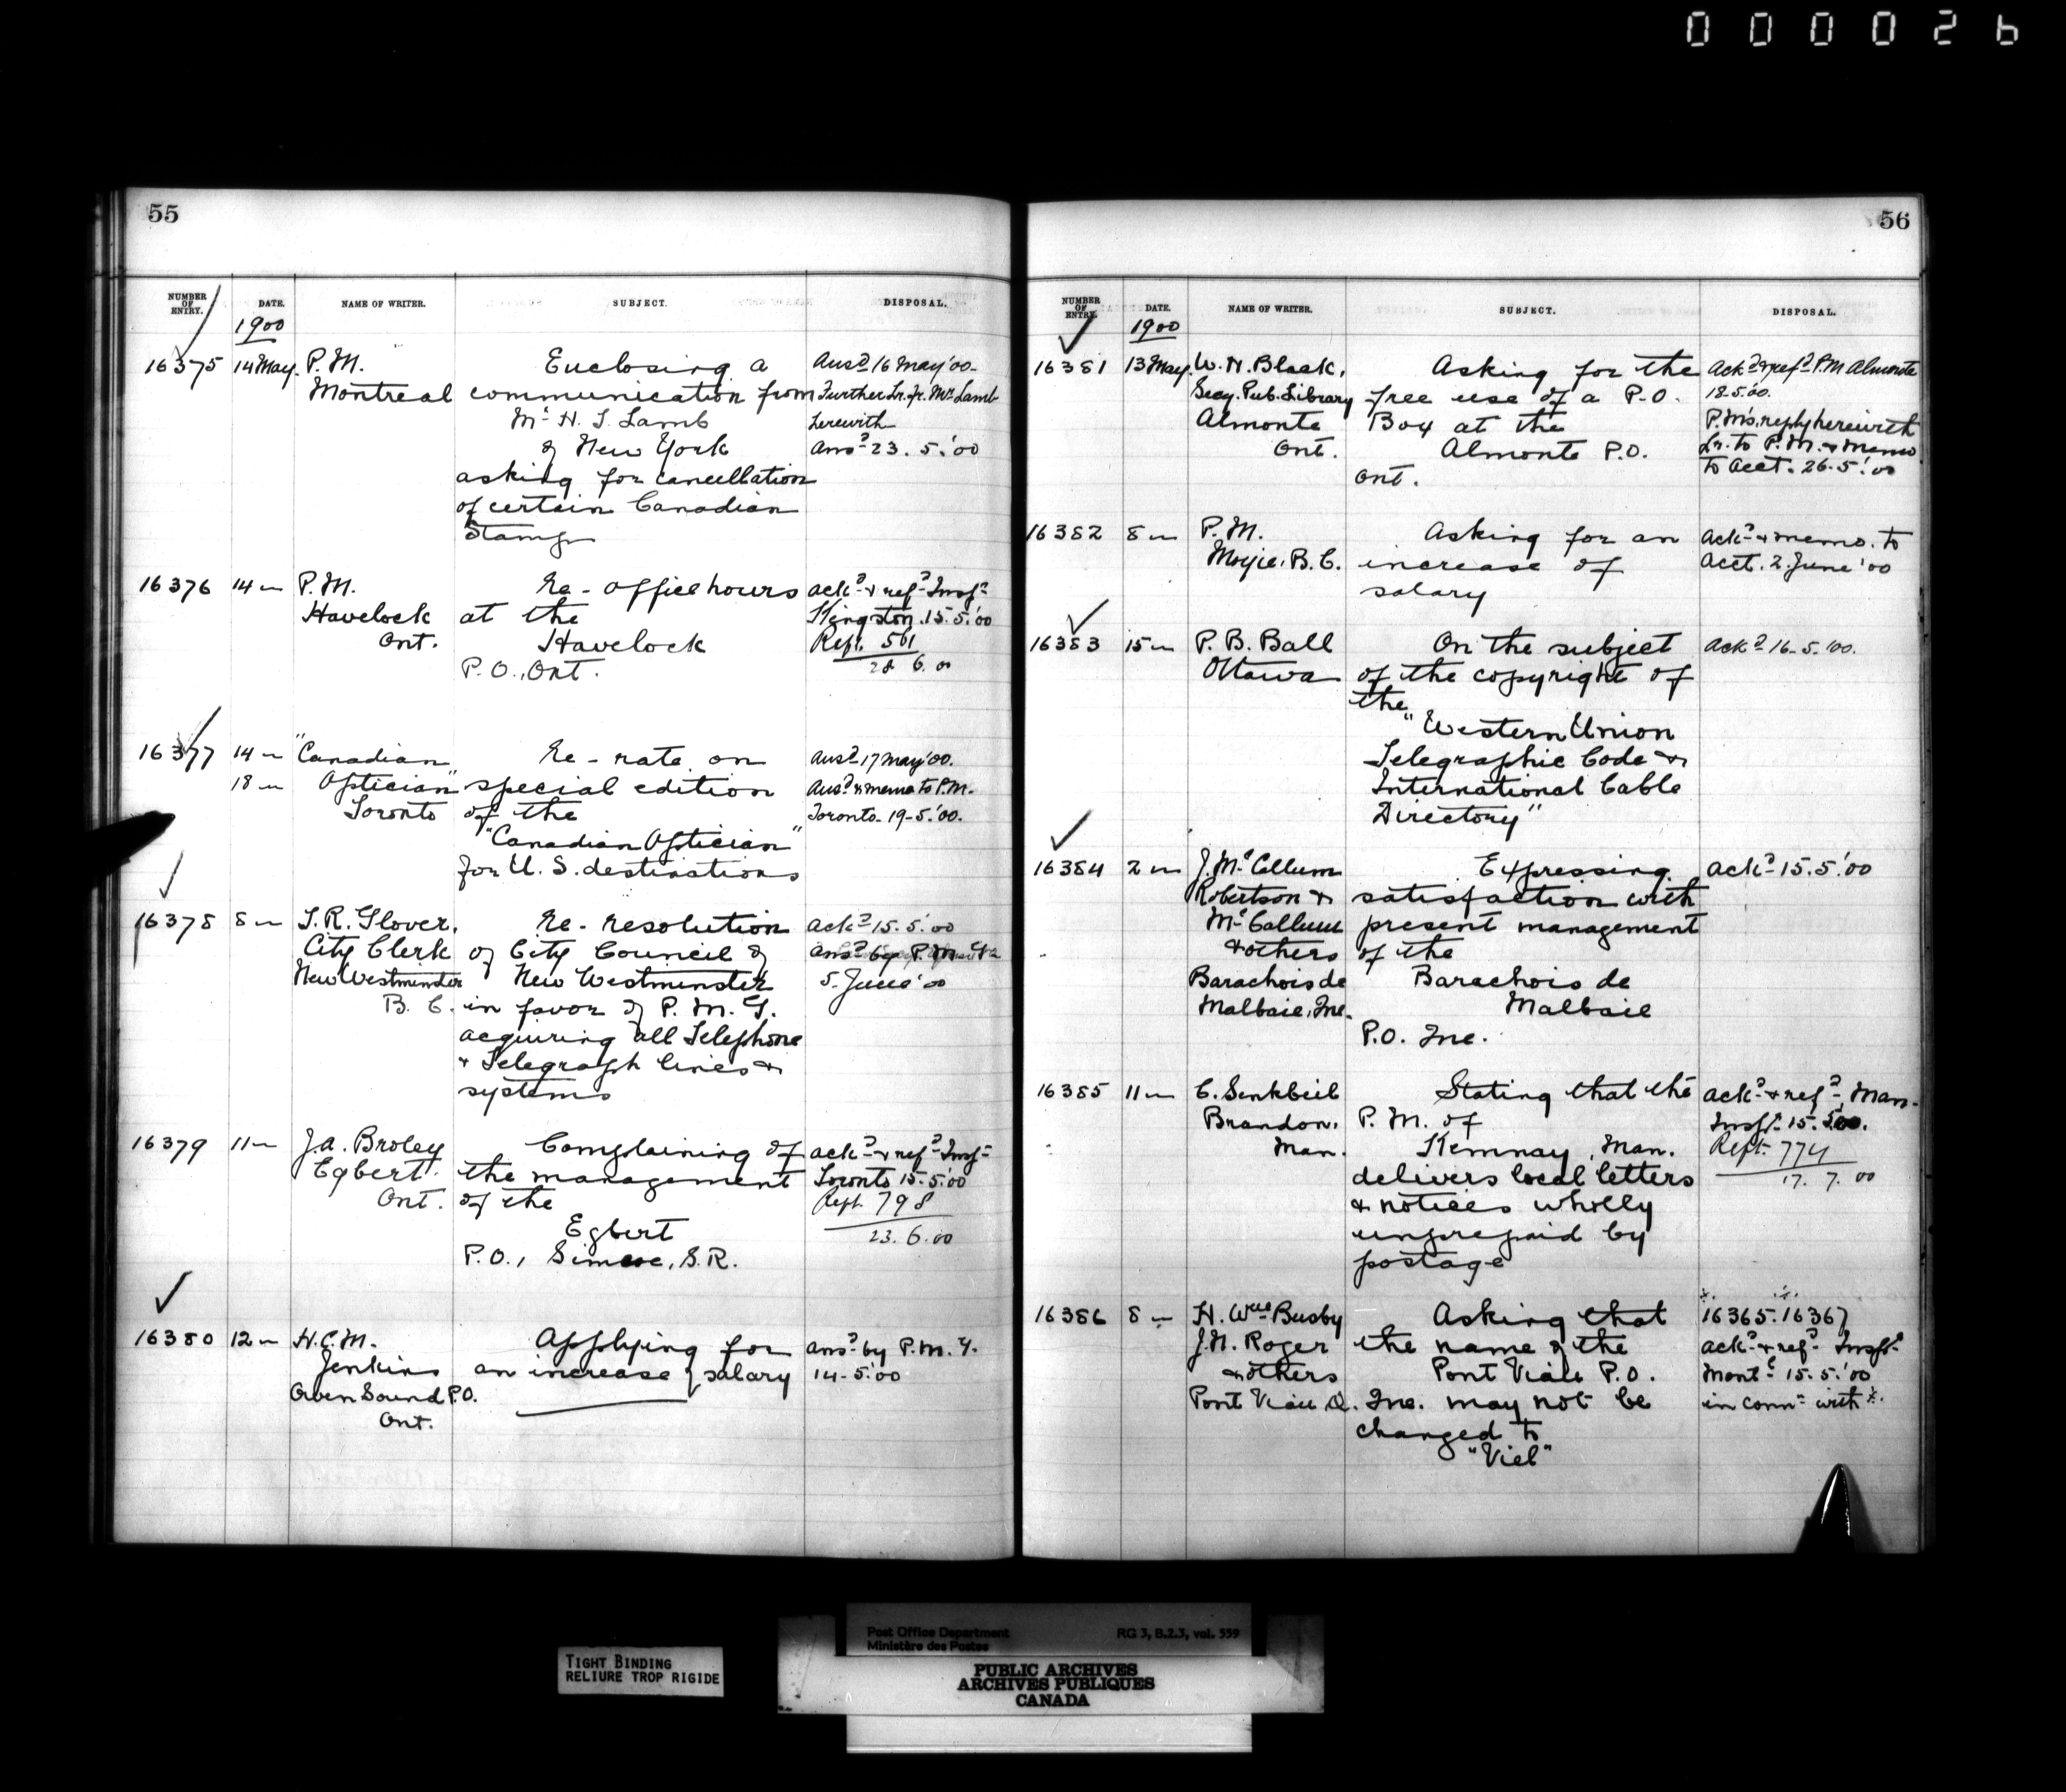 000026
55
NUMBER OF ENTRY. DATE. NAME OF WRITER. SUBJECT. DISPOSAL.
1900
16375 14 May. P.M. Enclosing a Ansd 16 May '00.
Montreal communication from Further Lr. fr. Mr Lamb
Mr H. J. Lamb herewith
of New York Ansd 23. 5. '00
asking for cancellation
of certain Canadian
Stamps
16376 14 " P.M. Re - office hours ackd & refd Inspr
Havelock at the Kingston. 15. 5. '00
Ont. Havelock Rept. 561
P.O., Ont. 28 6. 00
16377 14 " "Canadian Re - rate on Ansd 17 May '00.
18 " Optician" special edition Ansd & memo to P.M.
Toronto of the Toronto. 19-5. '00.
"Canadian Optician"
for U.S. destinations
16378 8 " T.R. Glover, Re - resolution ackd 15. 5. '00
City Clerk of City Council of ansd by P.M.G.
New Westminster New Westminster 5. June '00
B.C. in favor of P.M.G.
acquiring all Telephone
& Telegraph lines &
systems
16379 11 " J.A. Broley Complaining of ackd & refd Inspr
Egbert the management Toronto 15. 5. '00
Ont. of the Rept. 798
Egbert 23. 6. 00
P.O., Simcoe, S.R.
16380 12 " H.C.M. Applying for ansd by P.M.G.
Jenkins an increase of salary 14-5. '00
Owen Sound P.O.
Ont.
56
NUMBER OF ENTRY. DATE. NAME OF WRITER. SUBJECT. DISPOSAL.
1900
16381 13 May. W. H. Black, Asking for the Ackd & refd P.M Almonte
Secy. Pub. Library free use of a P.O. 18.5. '00.
Almonte Box at the P.M's. reply herewith
Ont. Almonte P.O. Lr. to P.M. & Memo
Ont. to Acct. 26.5. '00
16382 8 " P.M. Asking for an Ackd & memo. to
Moyie, B.C. increase of Acct. 2. June '00
salary
16383 15 " P. B. Ball On the subject Ackd 16-5. '00.
Ottawa of the copyright of
the
"Western Union
Telegraphic Code &
International Cable
Directory"
16384 2 " J. McCallum Expressing Ackd 15. 5. '00
Robertson & satisfaction with
McCallum present management
& others of the
Barachois de Barachois de
Malbaie, Que. Malbaie
P.O. Que.
16385 11 " C. Senkbeil Stating that the ackd & refd, Man.
Brandon, P.M. of Inspr. 15. 5. 00.
Man. Kemnay, Man. Rept. 774
delivers local letters 17. 7. 00
& notices wholly
unprepaid by
postage
16386 8 " H. Wm Busby Asking that 16365. 16367
J.N. Roger the name of the ackd & refd Inspr
& others Pont Viau P.O. Montl 15. 5. '00
Pont Viau Q. Que. may not be in connn with
changed to
"Viel"
Post Office Department RG 3, B.2.3, vol. 559
Ministère des Postes
TIGHT BINDING
RELIURE TROP RIGIDE
PUBLIC ARCHIVES
ARCHIVES PUBLIQUES
CANADA